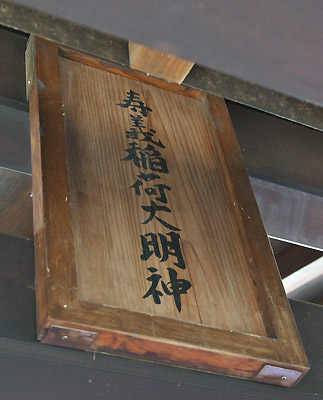 寿義稲荷大明神